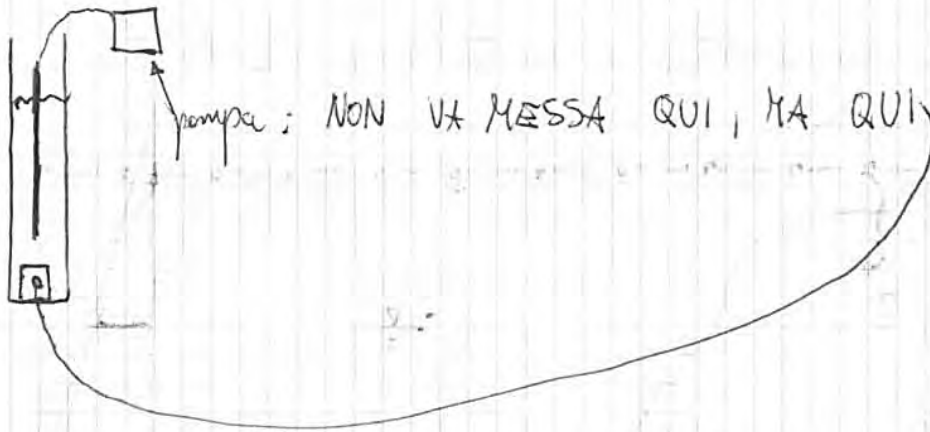 pompa: NON VA MESSA QUI, MA QUI